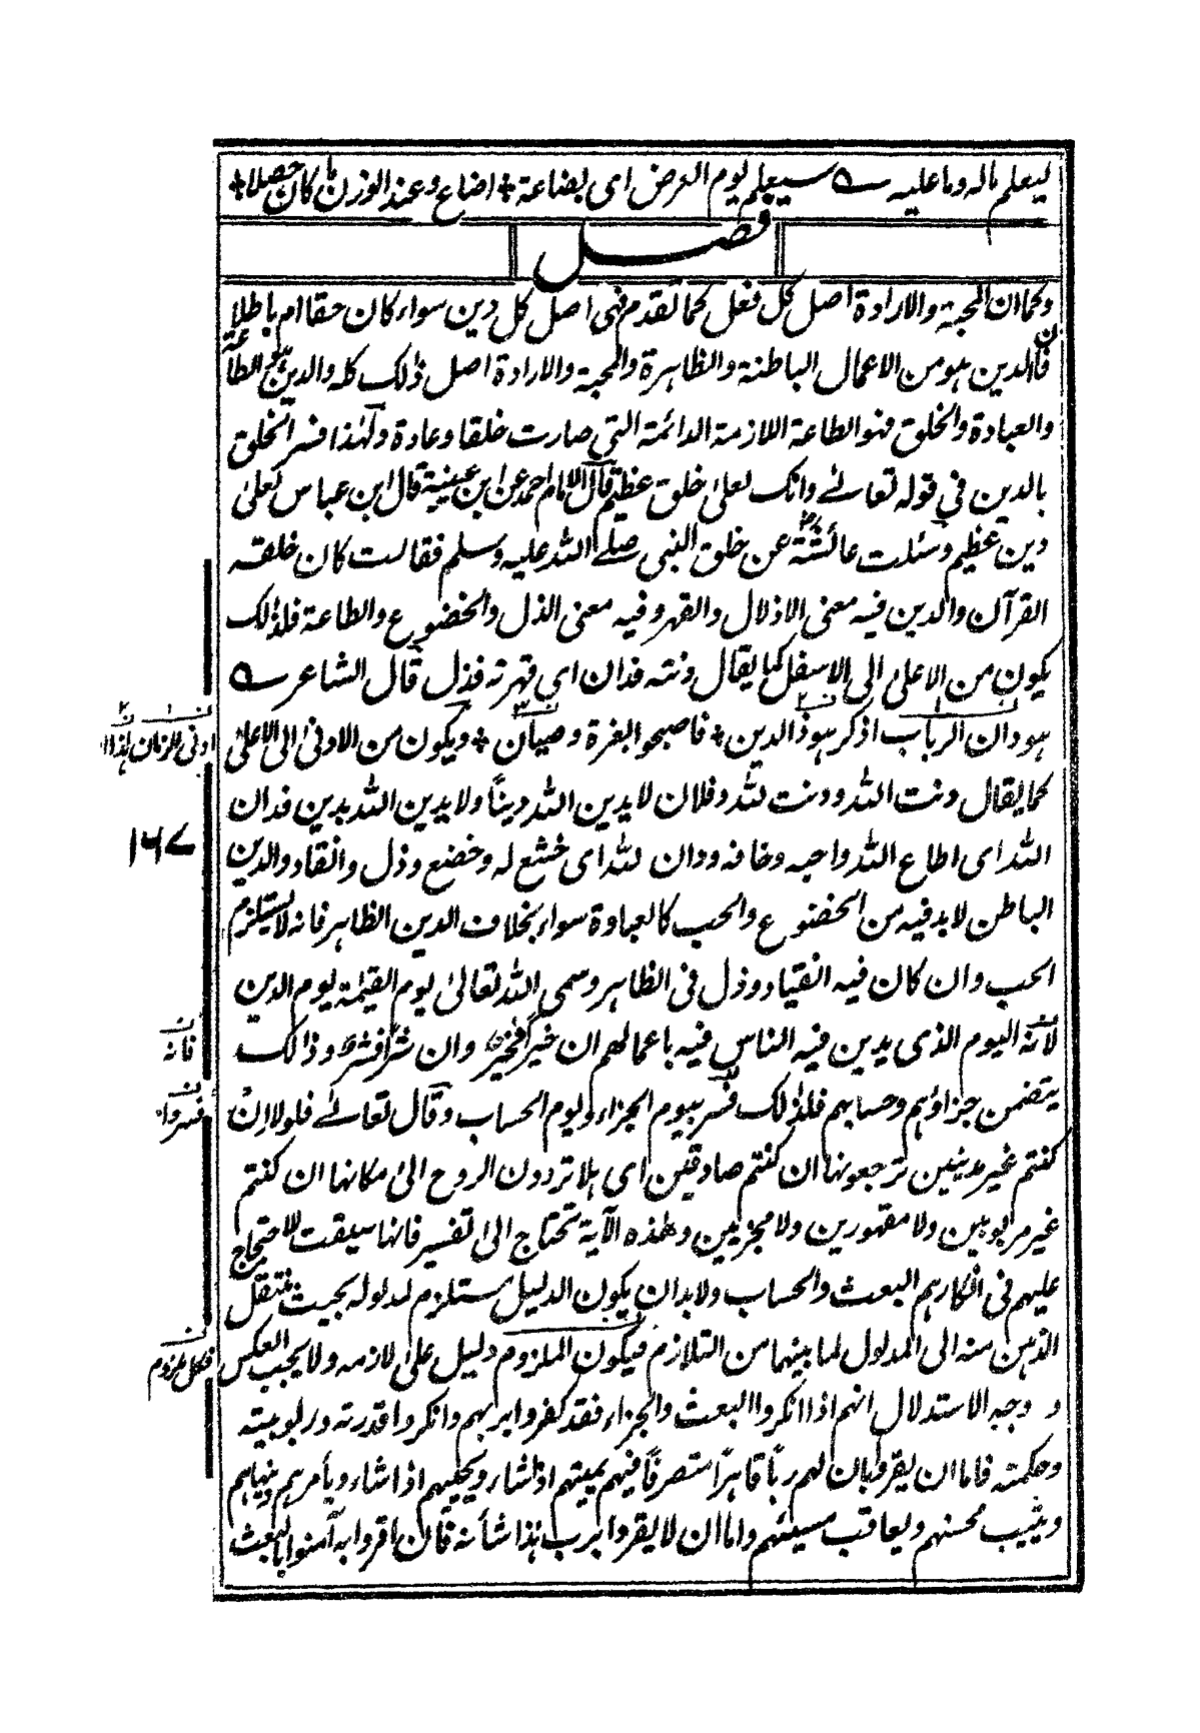 ليعلم ماله وما عليه ؎ سيعلم يوم العرض اى بضاعة * اضاع وعند الوزن ما كان حصلا *
فصل
وكما ان المحبة والارادة اصل كل فعل كما تقدم فهى اصل كل دين سواء كان حقا ام باطلا
فان الدين هو من الاعمال الباطنة والظاهرة والمحبة والارادة اصل ذلك كله والدين هو الطاعة
والعبادة والخلق فهو الطاعة اللازمة الدائمة التى صارت خلقا وعادة ولهذا فسر الخلق
بالدين فى قوله تعالے وانك لعلى خلق عظيم قال الامام احمد عن ابن عيينة قال ابن عباس لعلى
دين عظيم وسئلت عائشة رض عن خلق النبى صلے الله عليه وسلم فقالت كان خلقه
القرآن والدين فيه معنى الاذلال والقهر وفيه معنى الذل والخضوع والطاعة فلذلك
يكون من الاعلى الى الاسفل كما يقال دنته فدان اى قهرته فذل قال الشاعر ؎
هو دان الرباب اذ كرهوا الدين * فاصبحوا بعزة وصيان * ويكون من الادنى الى الاعلى
كما يقال دنت الله ودنت لله وفلان لا يدين الله دينا ولا يدين الله بدين فدان
الله اى اطاع الله واحبه وخافه ودان لله اى خشع له وخضع وذل وانقاد والدين
الباطن لا بد فيه من الخضوع والحب كالعبادة سواء بخلاف الدين الظاهر فانه لا يستلزم
الحب وان كان فيه انقياد وذل فى الظاهر وسمى الله تعالى يوم القيمة يوم الدين
لانه اليوم الذى يدين فيه الناس فيه باعمالهم ان خيرا فخير وان شرا فشر وذالك
يتضمن جزاؤهم وحسابهم فلذلك فسر بيوم الجزاء ويوم الحساب وقال تعالے فلولا ان
كنتم غير مدينين ترجعونها ان كنتم صادقين اى هلا تردون الروح الى مكانها ان كنتم
غير مربوبين ولا مقهورين ولا مجزيين وهذه الآية تحتاج الى تفسير فانها سيقت للاحتجاج
عليهم فى انكارهم البعث والحساب ولا بد ان يكون الدليل مستلزم لمدلوله بحيث ينتقل
الذهن منه الى المدلول لما بينهما من التلازم فيكون الملزوم دليل على لازمه ولا يجب العكس
و وجه الاستدلال انهم اذا انكروا البعث والجزاء فقد كفروا بربهم وانكروا قدرته وربوبيته
وحكمته فاما ان يقروا بان لهم ربا قاهرا متصرفا فيهم يميتهم اذا شاء ويحييهم اذا شاء ويأمرهم وينهاهم
ويثيب محسنهم ويعاقب مسيئهم واما ان لا يقروا برب هذا شأنه فان اقروا به آمنوا بالبعث
١٦٧
فانه
فسروا
فكل ملزوم